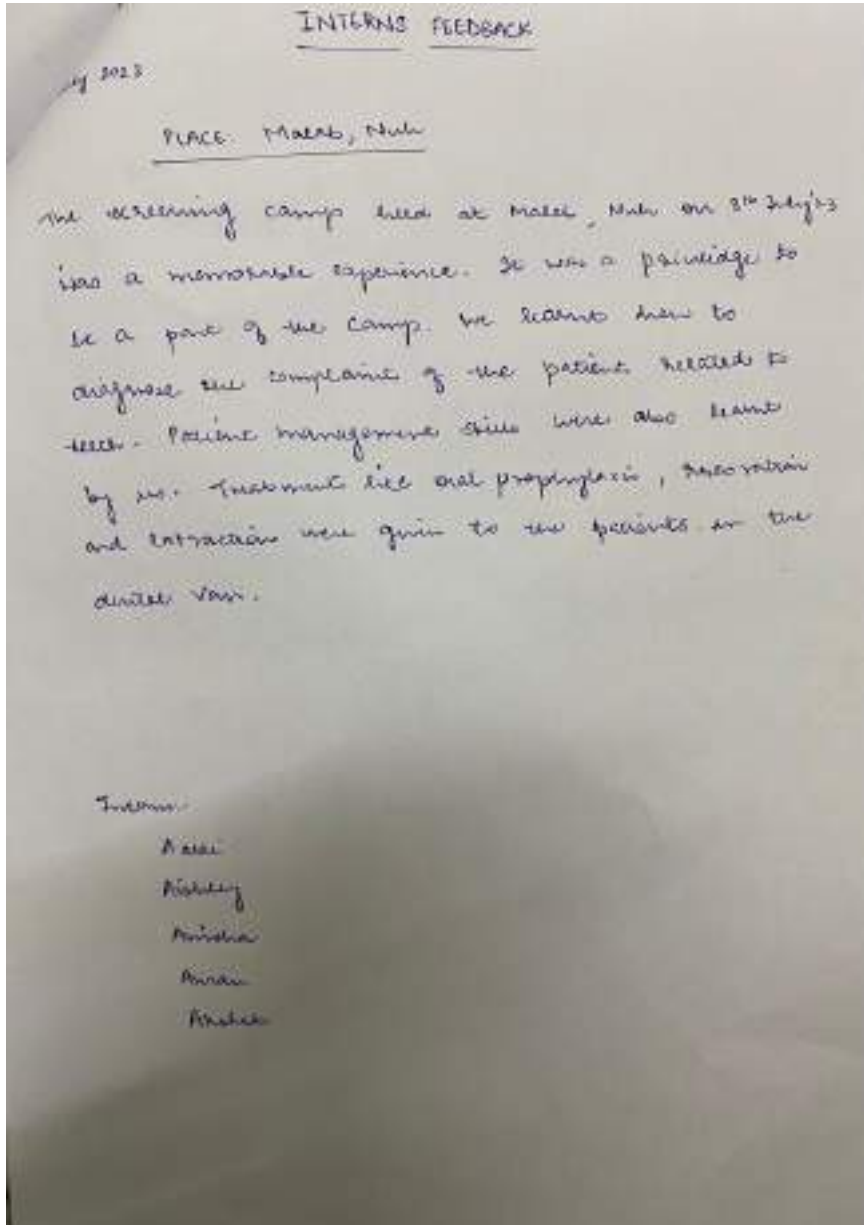 INTERNS FEEDBACK
2023
PLACE: Malab, Nuh
The screening camp held at Malab, Nuh on 8th July'23
was a memorable experience. It was a priviledge to
be a part of the camp. We learnt how to
diagnose the complaints of the patient related to
teeth. Patient management skills were also learnt
by us. Treatments like oral prophylaxis, restoration
and extraction were given to the patients in the
dental van.
Interns
Aishley
Anisha